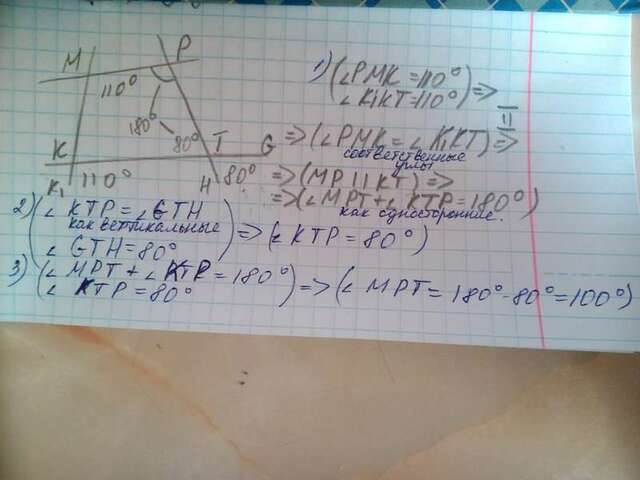 M
P
110°
180°
80°
K
T
G
K₁
110°
H
80°
1) (∠PMK = 110°
∠K₁KT = 110°) =>
=> (∠PMK = ∠K₁KT) =>
соответственные
углы
=> (MP || KT) =>
=> (∠MPT + ∠KTP = 180°)
как односторонние.
2) (∠KTP = ∠GTH
как вертикальные
∠GTH = 80°) => (∠KTP = 80°)
3) (∠MPT + ∠KTP = 180°
∠KTP = 80°) => (∠MPT = 180° - 80° = 100°)